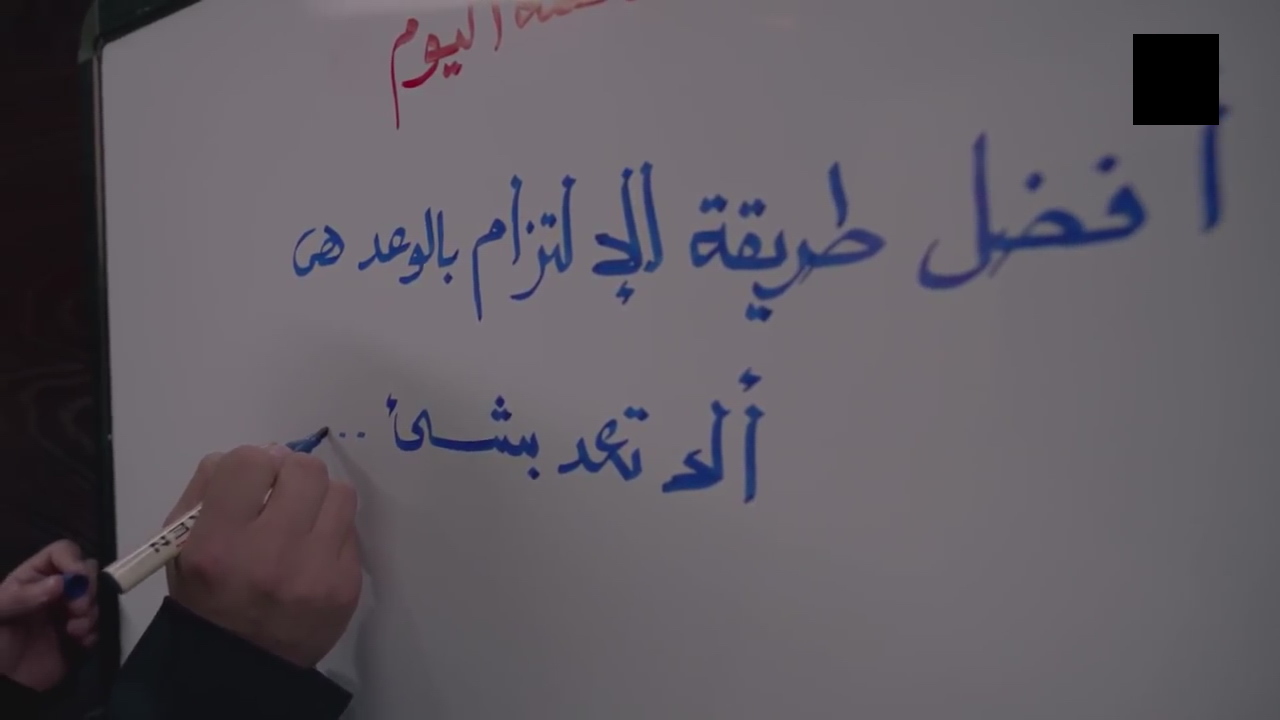 اليوم
أفضل طريقة الإلتزام بالوعد هى
ألا تعد بشئ ...